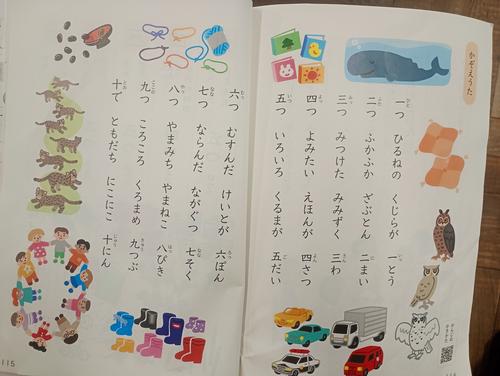 かぞえうた
一つ ひるねの くじらが 一とう
二つ ふかふか ざぶとん 二まい
三つ みつけた みみずく 三わ
四つ よみたい えほんが 四さつ
五つ いろいろ くるまが 五だい
六つ むすんだ けいとが 六ぽん
七つ ならんだ ながぐつ 七そく
八つ やまみち やまねこ 八ぴき
九つ ころころ くろまめ 九つぶ
十で ともだち にこにこ 十にん
115